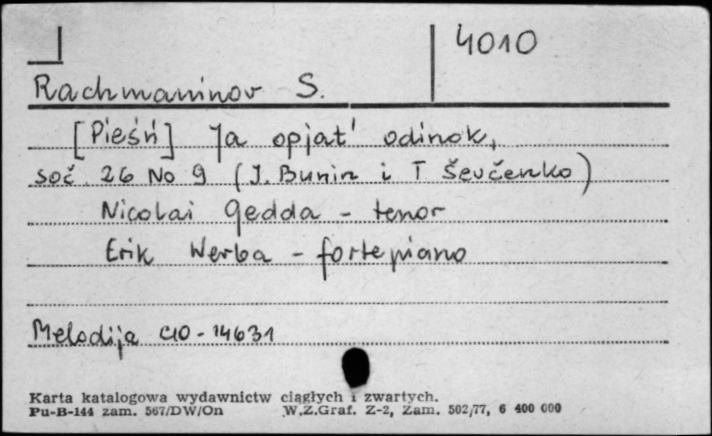 4010
Rachmaninov S.
[Pieśń] Ja opjat' odinok,
soč. 26 No 9 (J. Bunin i T Ševčenko)
Nicolai Gedda - tenor
Erik Werba - fortepiano
Melodija C10-14631
Karta katalogowa wydawnictw ciągłych i zwartych.
Pu-B-144 zam. 567/DW/On W.Z.Graf. Z-2, Zam. 502/77, 6 400 000